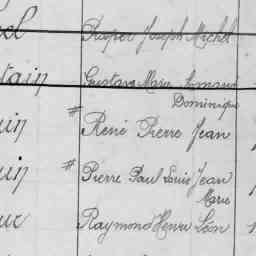 el Prosper Joseph Michel
tain Gustave Marie Armand
Dominique
uin # René Pierre Jean
uin # Pierre Paul Louis Jean
Marie
ur Raymond Henri Léon